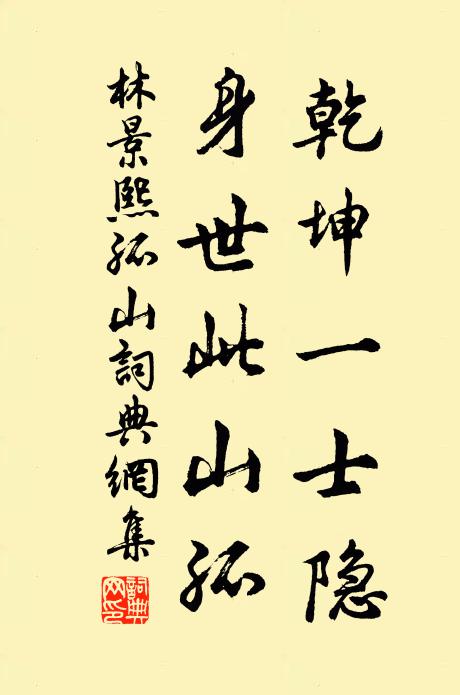 乾坤一士隐
身世此山孤
林景熙孤山詞典網集
詞典
网印